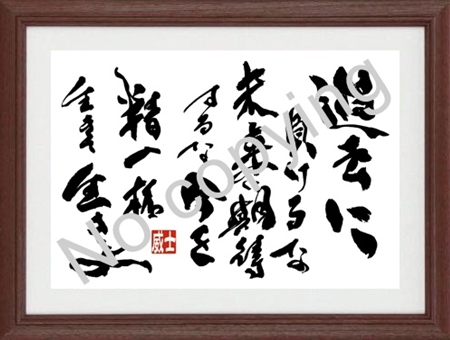 過去に
負けるな
未来に期待
するな今を
精一杯
生き
威士
No copying